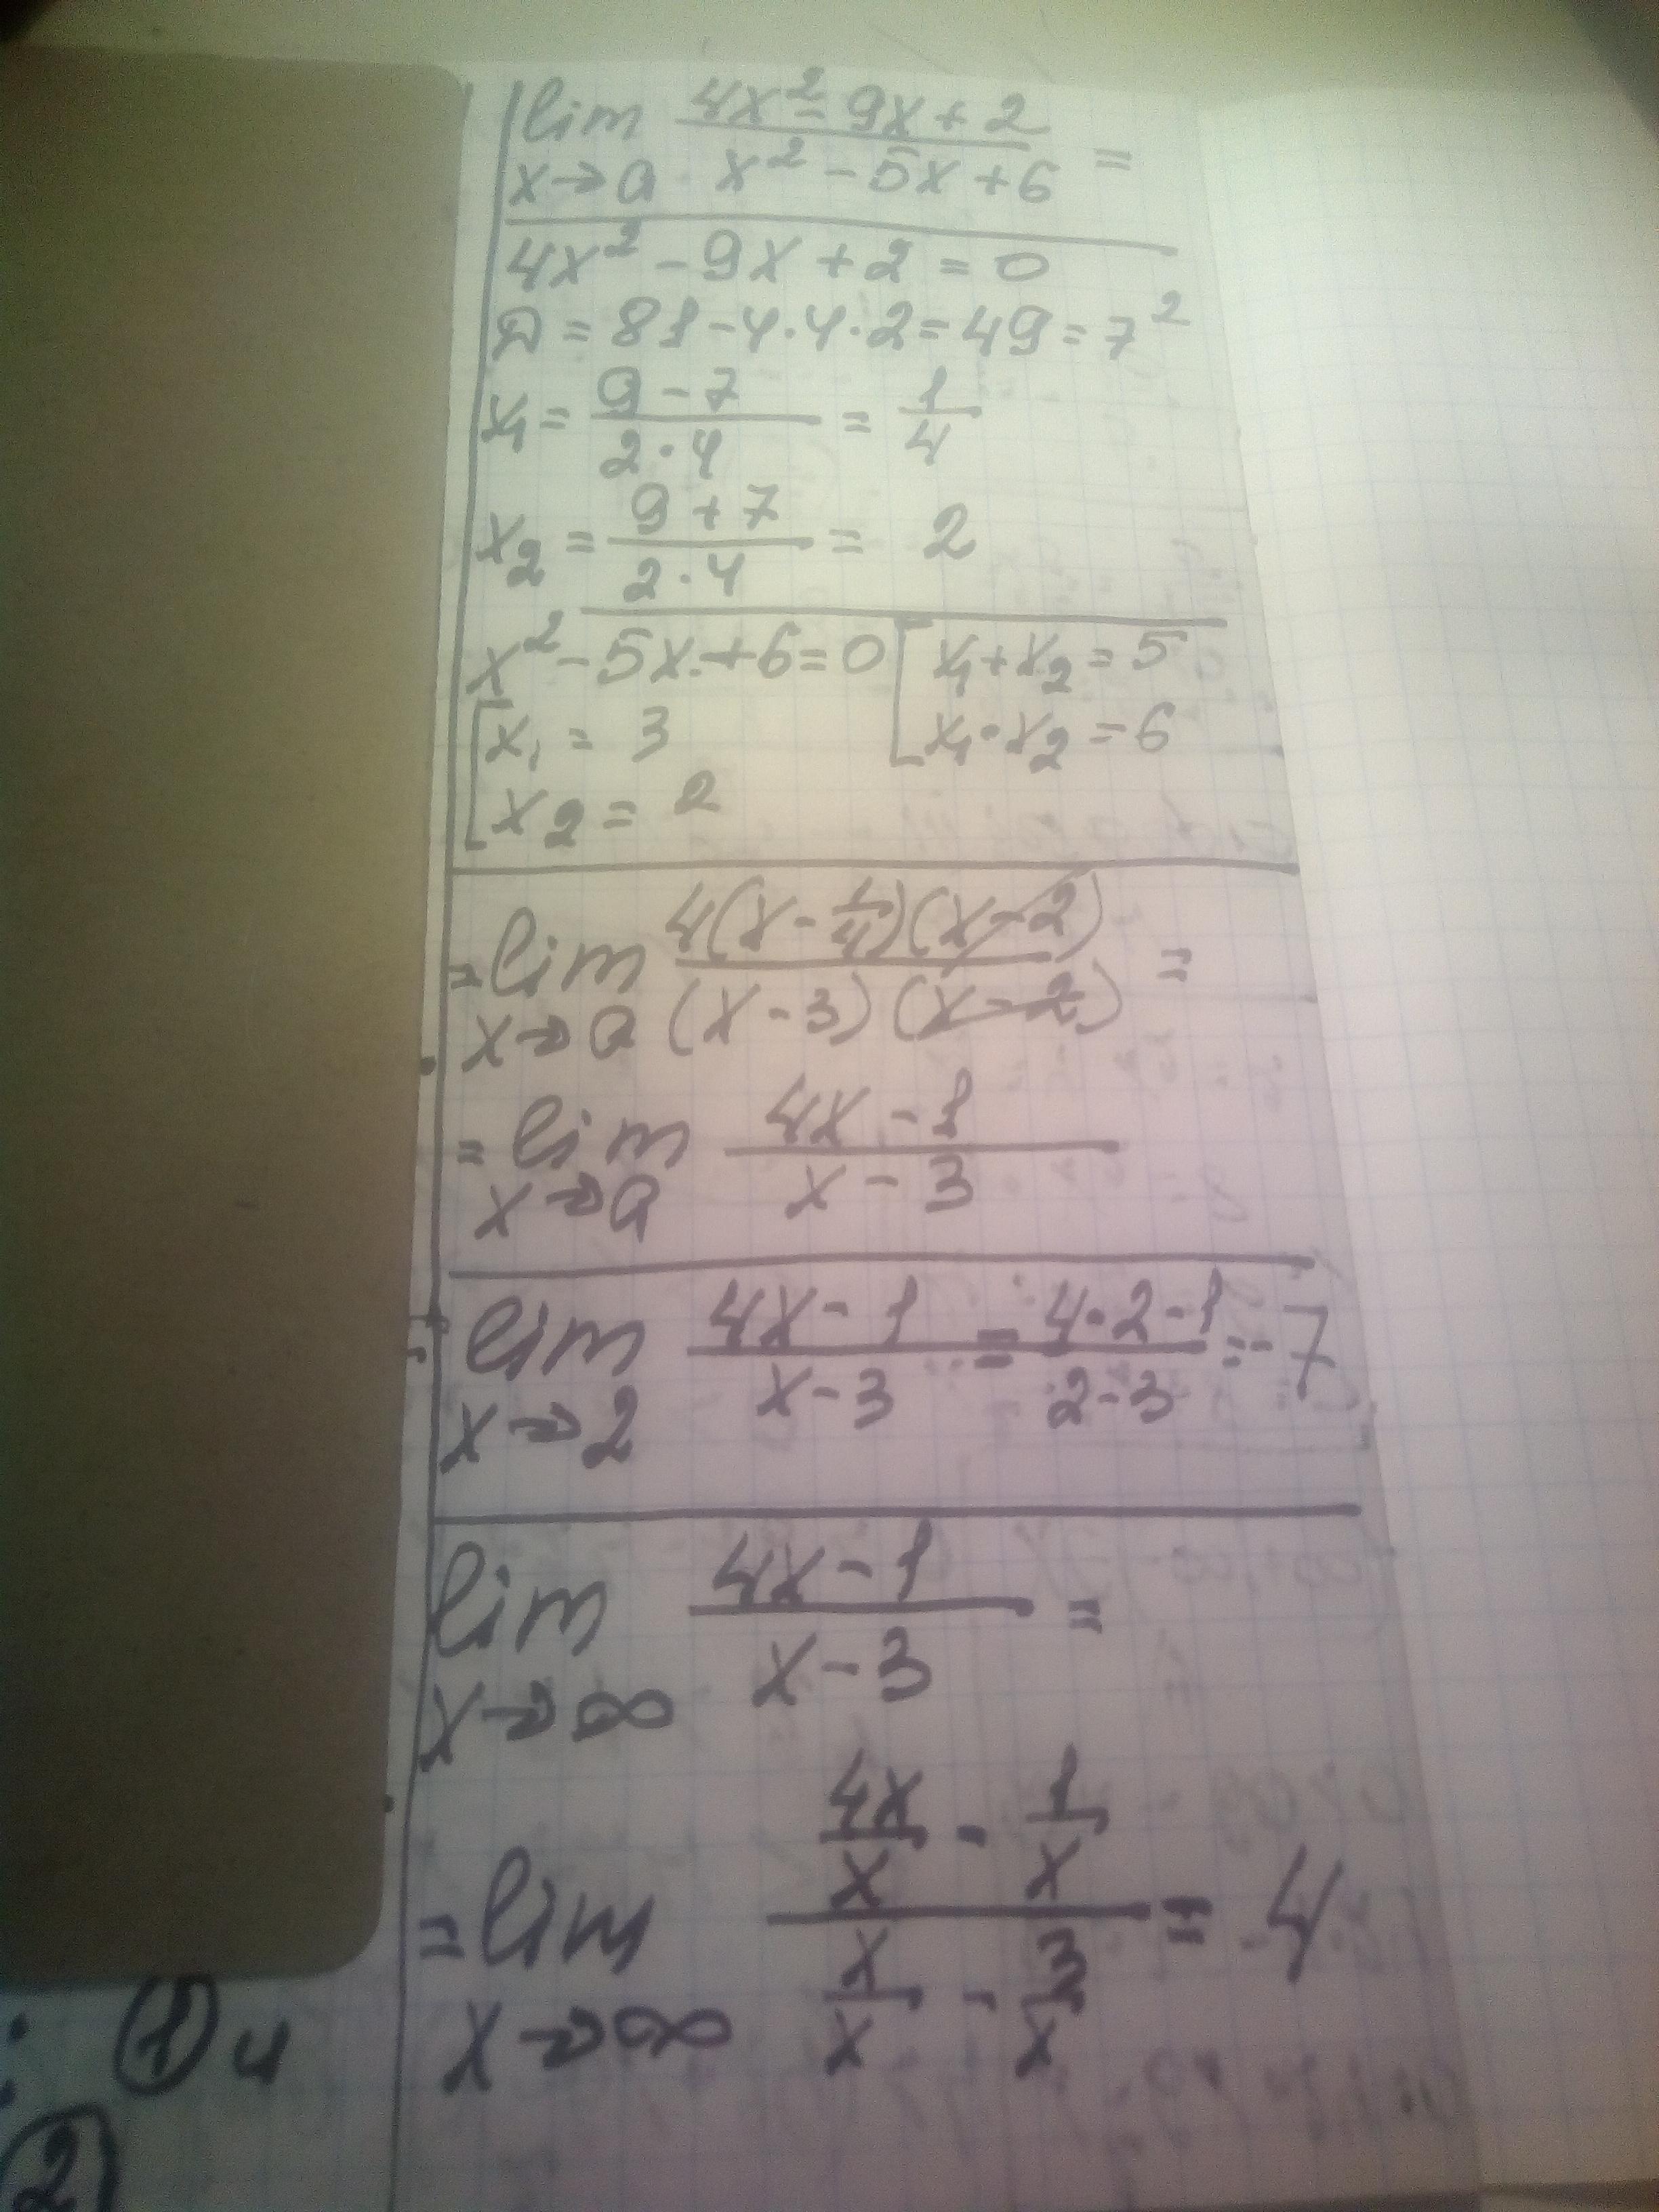 lim (4x² - 9x + 2)/(x² - 5x + 6) =
x→a
4x² - 9x + 2 = 0
D = 81 - 4·4·2 = 49 = 7²
x₁ = (9 - 7)/(2·4) = 1/4
x₂ = (9 + 7)/(2·4) = 2
x² - 5x + 6 = 0 [ x₁ + x₂ = 5
[ x₁ = 3 x₁·x₂ = 6
x₂ = 2
= lim (4(x - 1/4)(x - 2))/((x - 3)(x - 2)) =
x→a
= lim (4x - 1)/(x - 3)
x→a
lim (4x - 1)/(x - 3) = (4·2 - 1)/(2 - 3) = -7
x→2
lim (4x - 1)/(x - 3) =
x→∞
= lim (4x/x - 1/x)/(x/x - 3/x) = 4
x→∞
: ① и
②